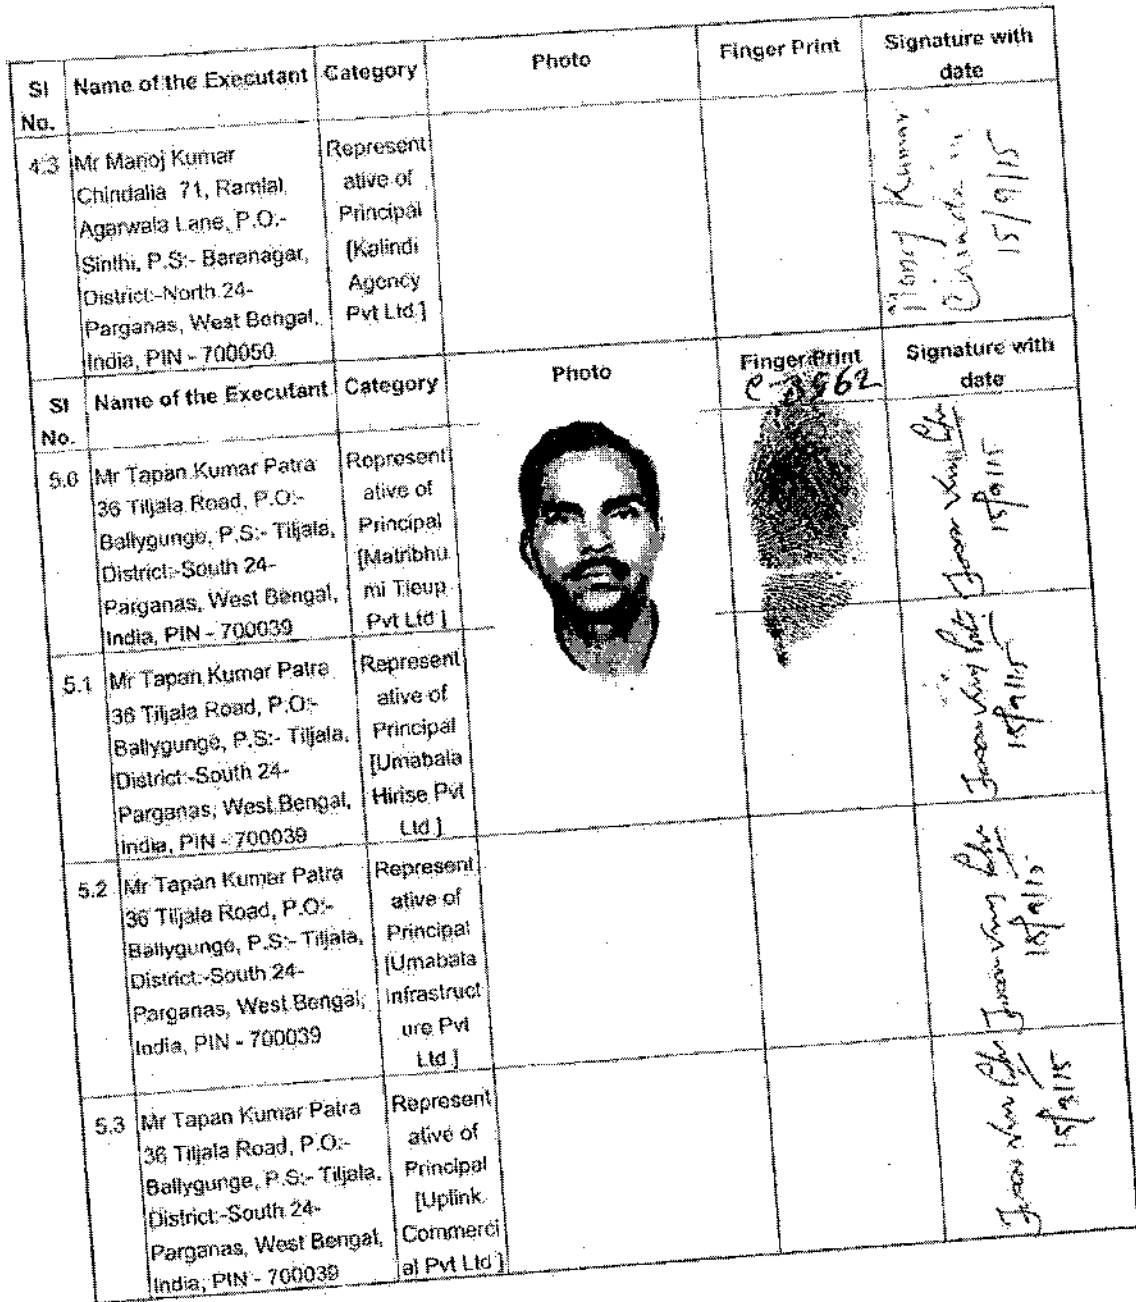 Sl No. Name of the Executant Category Photo Finger Print Signature with date
4.3 Mr Manoj Kumar
Chindalia 71, Ramlal
Agarwala Lane, P.O:-
Sinthi, P.S:- Baranagar,
District:-North 24-
Parganas, West Bengal,
India, PIN - 700050
Represent
ative of
Principal
[Kalindi
Agency
Pvt Ltd.]
Manoj Kumar
Chindalia
15/9/15
Sl No. Name of the Executant Category Photo Finger Print Signature with date
5.0 Mr Tapan Kumar Patra
36 Tiljala Road, P.O:-
Ballygunge, P.S:- Tiljala,
District:-South 24-
Parganas, West Bengal,
India, PIN - 700039
Represent
ative of
Principal
[Matribhu
mi Tieup
Pvt Ltd ]
15/9/15
5.1 Mr Tapan Kumar Patra
36 Tiljala Road, P.O:-
Ballygunge, P.S:- Tiljala,
District:-South 24-
Parganas, West Bengal,
India, PIN - 700039
Represent
ative of
Principal
[Umabala
Hirise Pvt
Ltd.]
15/9/15
5.2 Mr Tapan Kumar Patra
36 Tiljala Road, P.O:-
Ballygunge, P.S:- Tiljala,
District:-South 24-
Parganas, West Bengal,
India, PIN - 700039
Represent
ative of
Principal
[Umabala
Infrastruct
ure Pvt
Ltd ]
15/9/15
5.3 Mr Tapan Kumar Patra
36 Tiljala Road, P.O:-
Ballygunge, P.S:- Tiljala,
District:-South 24-
Parganas, West Bengal,
India, PIN - 700039
Represent
ative of
Principal
[Uplink
Commerci
al Pvt Ltd ]
15/9/15